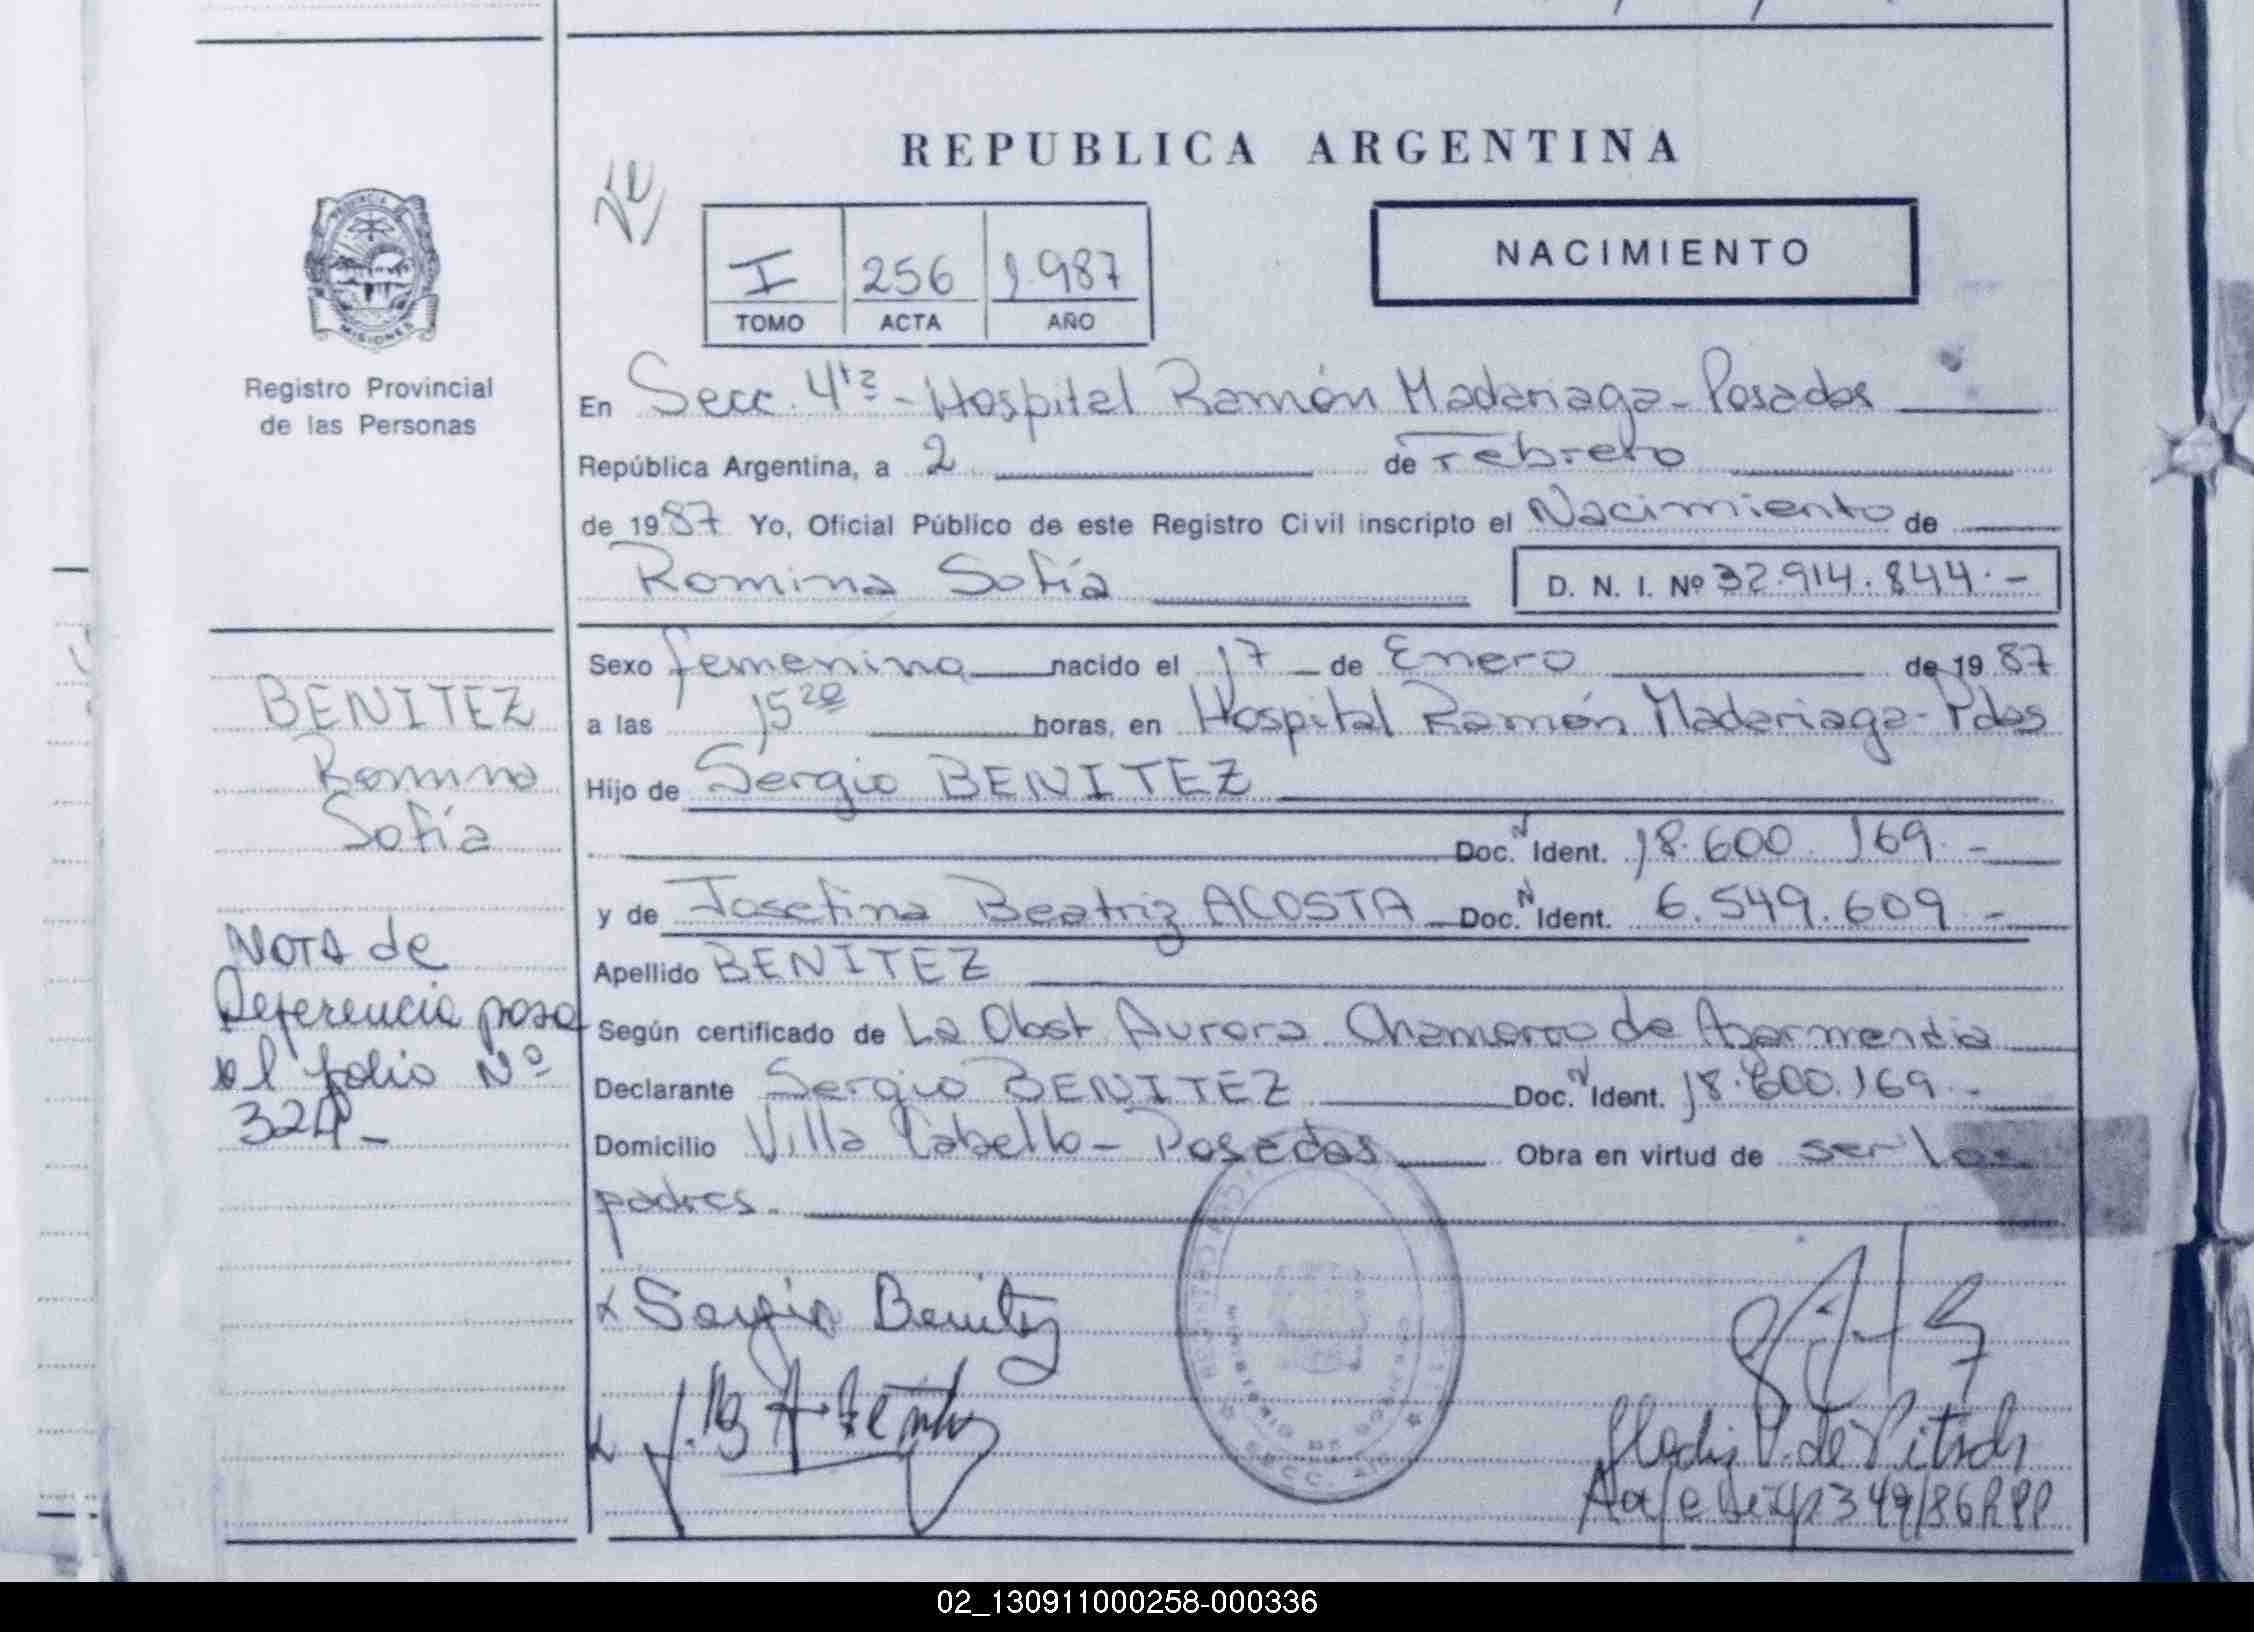 REPUBLICA ARGENTINA
PROVINCIA DE
MISIONES
Registro Provincial
de las Personas
I 256 1.987
TOMO ACTA AÑO
NACIMIENTO
En Secc. 4ta - Hospital Ramón Madariaga - Posadas
República Argentina, a 2 de Febrero
de 1987 Yo, Oficial Público de este Registro Civil inscripto el Nacimiento de
Romina Sofía D. N. I. Nº 32.914.844.-
Sexo femenino nacido el 17 de Enero de 1987
a las 15 20 horas, en Hospital Ramón Madariaga - Pdas
Hijo de Sergio BENITEZ
Doc. N Ident. 18.600.169.-
y de Josefina Beatriz ACOSTA Doc. N Ident. 6.549.609.-
Apellido BENITEZ
Según certificado de La Obst Aurora Chamorro de Azarmendia
Declarante Sergio BENITEZ Doc. N Ident. 18.600.169.-
Domicilio Villa Cabello - Posadas Obra en virtud de ser los
padres.
BENITEZ
Romina
Sofía
NOTA de
Referencia pasa
al folio Nº
324-
Sergio Benitez
MINISTERIO DE GOBIERNO
SECC. 4ta
02_130911000258-000336